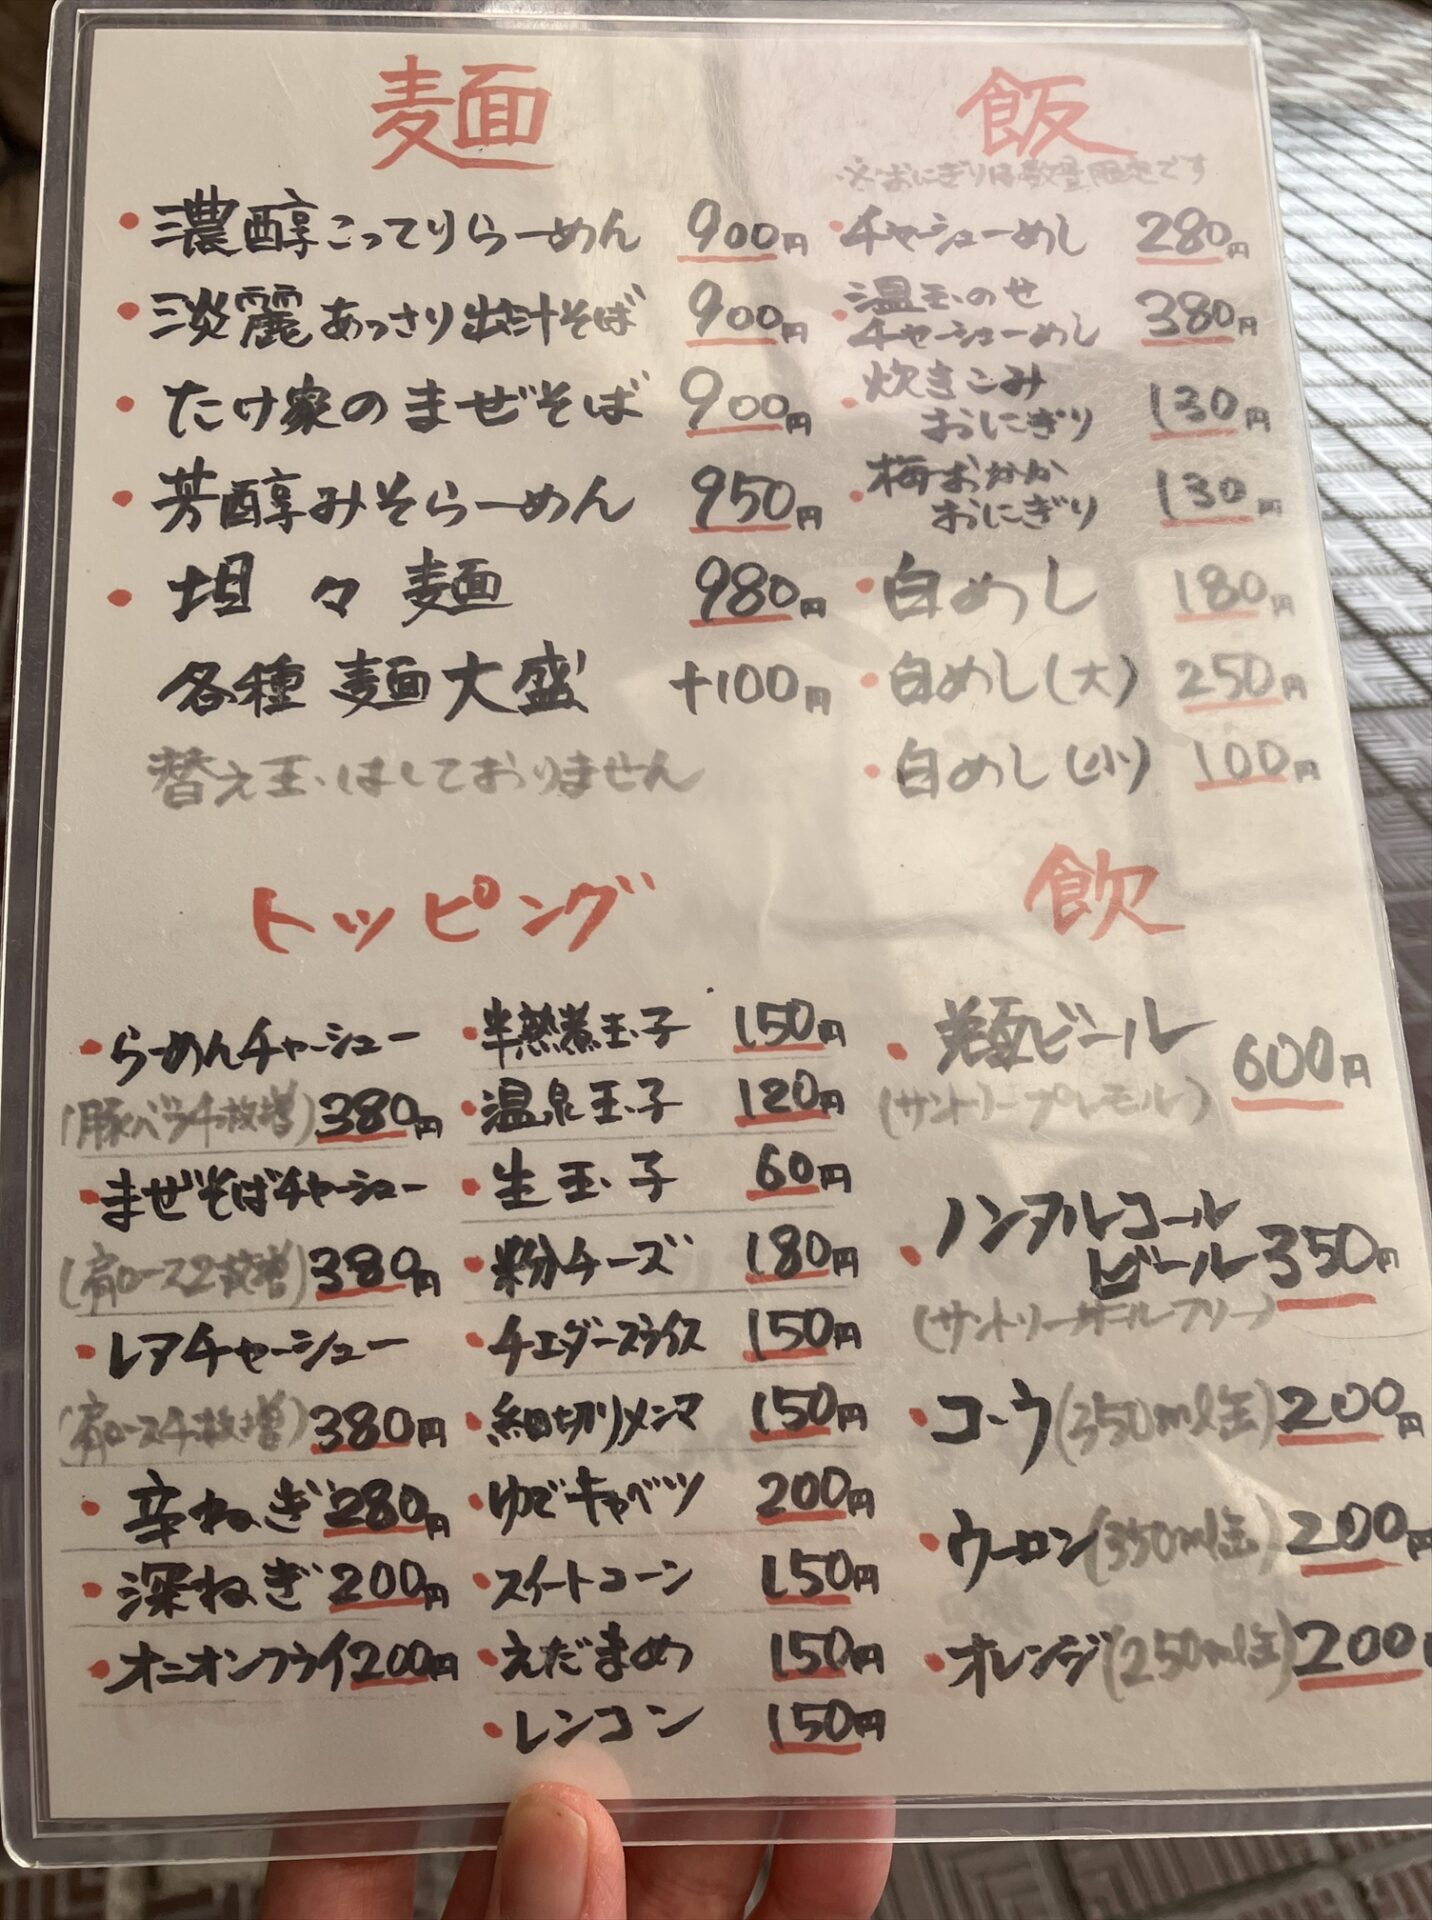 麺
・濃醇こってりらーめん 900円
・淡麗あっさり出汁そば 900円
・たけ家のまぜそば 900円
・芳醇みそらーめん 950円
・坦々麺 980円
各種 麺大盛 +100円
替え玉はしておりません
飯
※おにぎりは数量限定です
・チャーシューめし 280円
・温玉のせ
チャーシューめし 380円
・炊きこみ
おにぎり 130円
・梅おかか
おにぎり 130円
・白めし 180円
・白めし(大) 250円
・白めし(小) 100円
トッピング
・らーめんチャーシュー
(豚バラ4枚増) 380円
・まぜそばチャーシュー
(肩ロース2枚増) 380円
・レアチャーシュー
(肩ロース4枚増) 380円
・辛ねぎ 280円
・深ねぎ 200円
・オニオンフライ 200円
・半熟煮玉子 150円
・温泉玉子 120円
・生玉子 60円
・粉チーズ 180円
・チェダースライス 150円
・細切りメンマ 150円
・ゆでキャベツ 200円
・スイートコーン 150円
・えだまめ 150円
・レンコン 150円
飲
・ビール 600円
(サントリープレモル)
・ノンアルコール
ビール 350円
(サントリーオールフリー)
・コーラ(350ml缶) 200円
・ウーロン(350ml缶) 200円
・オレンジ(250ml缶) 200